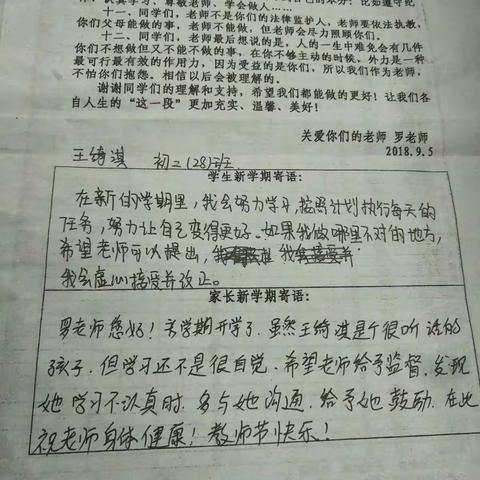 做人……
十一、同学们，老师不是你们的法律监护人，老师要依法执教，
你们父母能做的事，老师不能做，但老师会尽力照顾你们。
十二、同学们，老师最后想说的是，人的一生中难免会有几件
你们不想做但又不能不做的事，在你不够主动的时候，外力是一种
最可行最有效的作用力，因为受益的是你们，所以我们作为老师，
不怕你们抱怨。相信以后会被理解的。
谢谢同学们的理解和支持，希望我们都能做的更好！让我们各
自人生的“这一段”更加充实、温馨、美好！
关爱你们的老师 罗老师
2018.9.5
王绮淇 初二(28)班
学生新学期寄语：
在新的学期里，我会努力学习，按照计划执行每天的
任务，努力让自己变得更好。如果我做哪里不对的地方，
希望老师可以提出，
我会虚心接受并改正。
家长新学期寄语：
罗老师您好！新学期开学了，虽然王绮淇是个很听话的
孩子，但学习还不是很自觉，希望老师给予监督，发现
她学习不认真时，多与她沟通，给予她鼓励，在此
祝老师身体健康！教师节快乐！